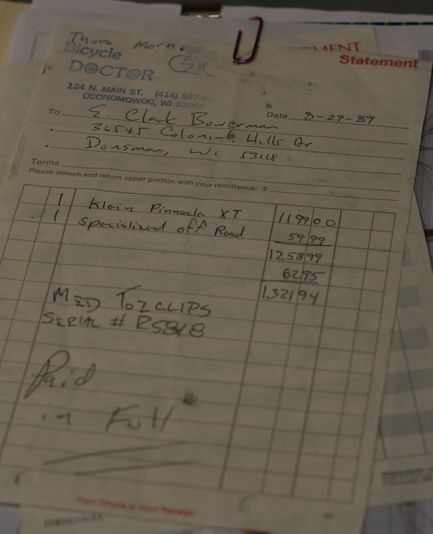 Thurs Morn.
OK
Bicycle
DOCTOR
STATEMENT
Statement
124 N. MAIN ST. (414) 567
OCONOMOWOC, WI 53066
To E. Clark Bowerman Date 8-29-89
Colonial Hills Dr
Dousman, Wi 53118
Terms
Please detach and return upper portion with your remittance. $
1 Klein Pinnacle XT 1199 00
1 Specialized off Road 59 99
1258 99
62 95
1321 94
MED TOE CLIPS
SERIAL #
Paid
in Full
Your Check is Your Receipt